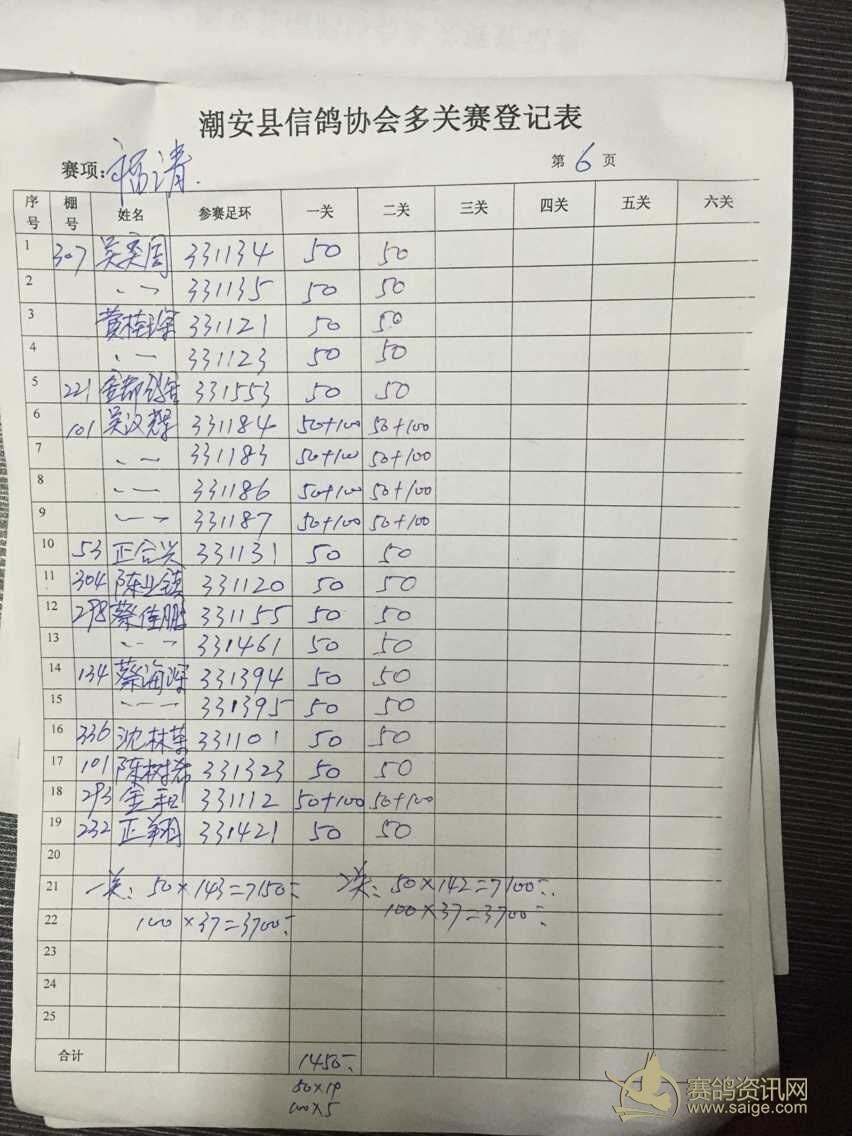 潮安县信鸽协会多关赛登记表
赛项: 福清. 第 6 页
序号 棚号 姓名 参赛足环 一关 二关 三关 四关 五关 六关
1 307 吴奕周 331134 50 50
2 〃 331135 50 50
3 黄桂深 331121 50 50
4 〃 331123 50 50
5 221 331553 50 50
6 101 吴汉辉 331184 50+100 50+100
7 〃 331183 50+100 50+100
8 〃 331186 50+100 50+100
9 〃 331187 50+100 50+100
10 53 正合兴 331131 50 50
11 304 陈业镇 331120 50 50
12 298 蔡佳鹏 331155 50 50
13 〃 331461 50 50
14 134 蔡海深 331394 50 50
15 〃 331395 50 50
16 336 沈林 331101 50 50
17 101 陈树 331323 50 50
18 293 金和 331112 50+100 50+100
19 232 正翔 331421 50 50
20
21 一关: 50×143=7150 二关: 50×142=7100
22 100×37=3700 100×37=3700
23
24
25
合计 1450
50×19
100×5
赛鸽资讯网
www.saige.com